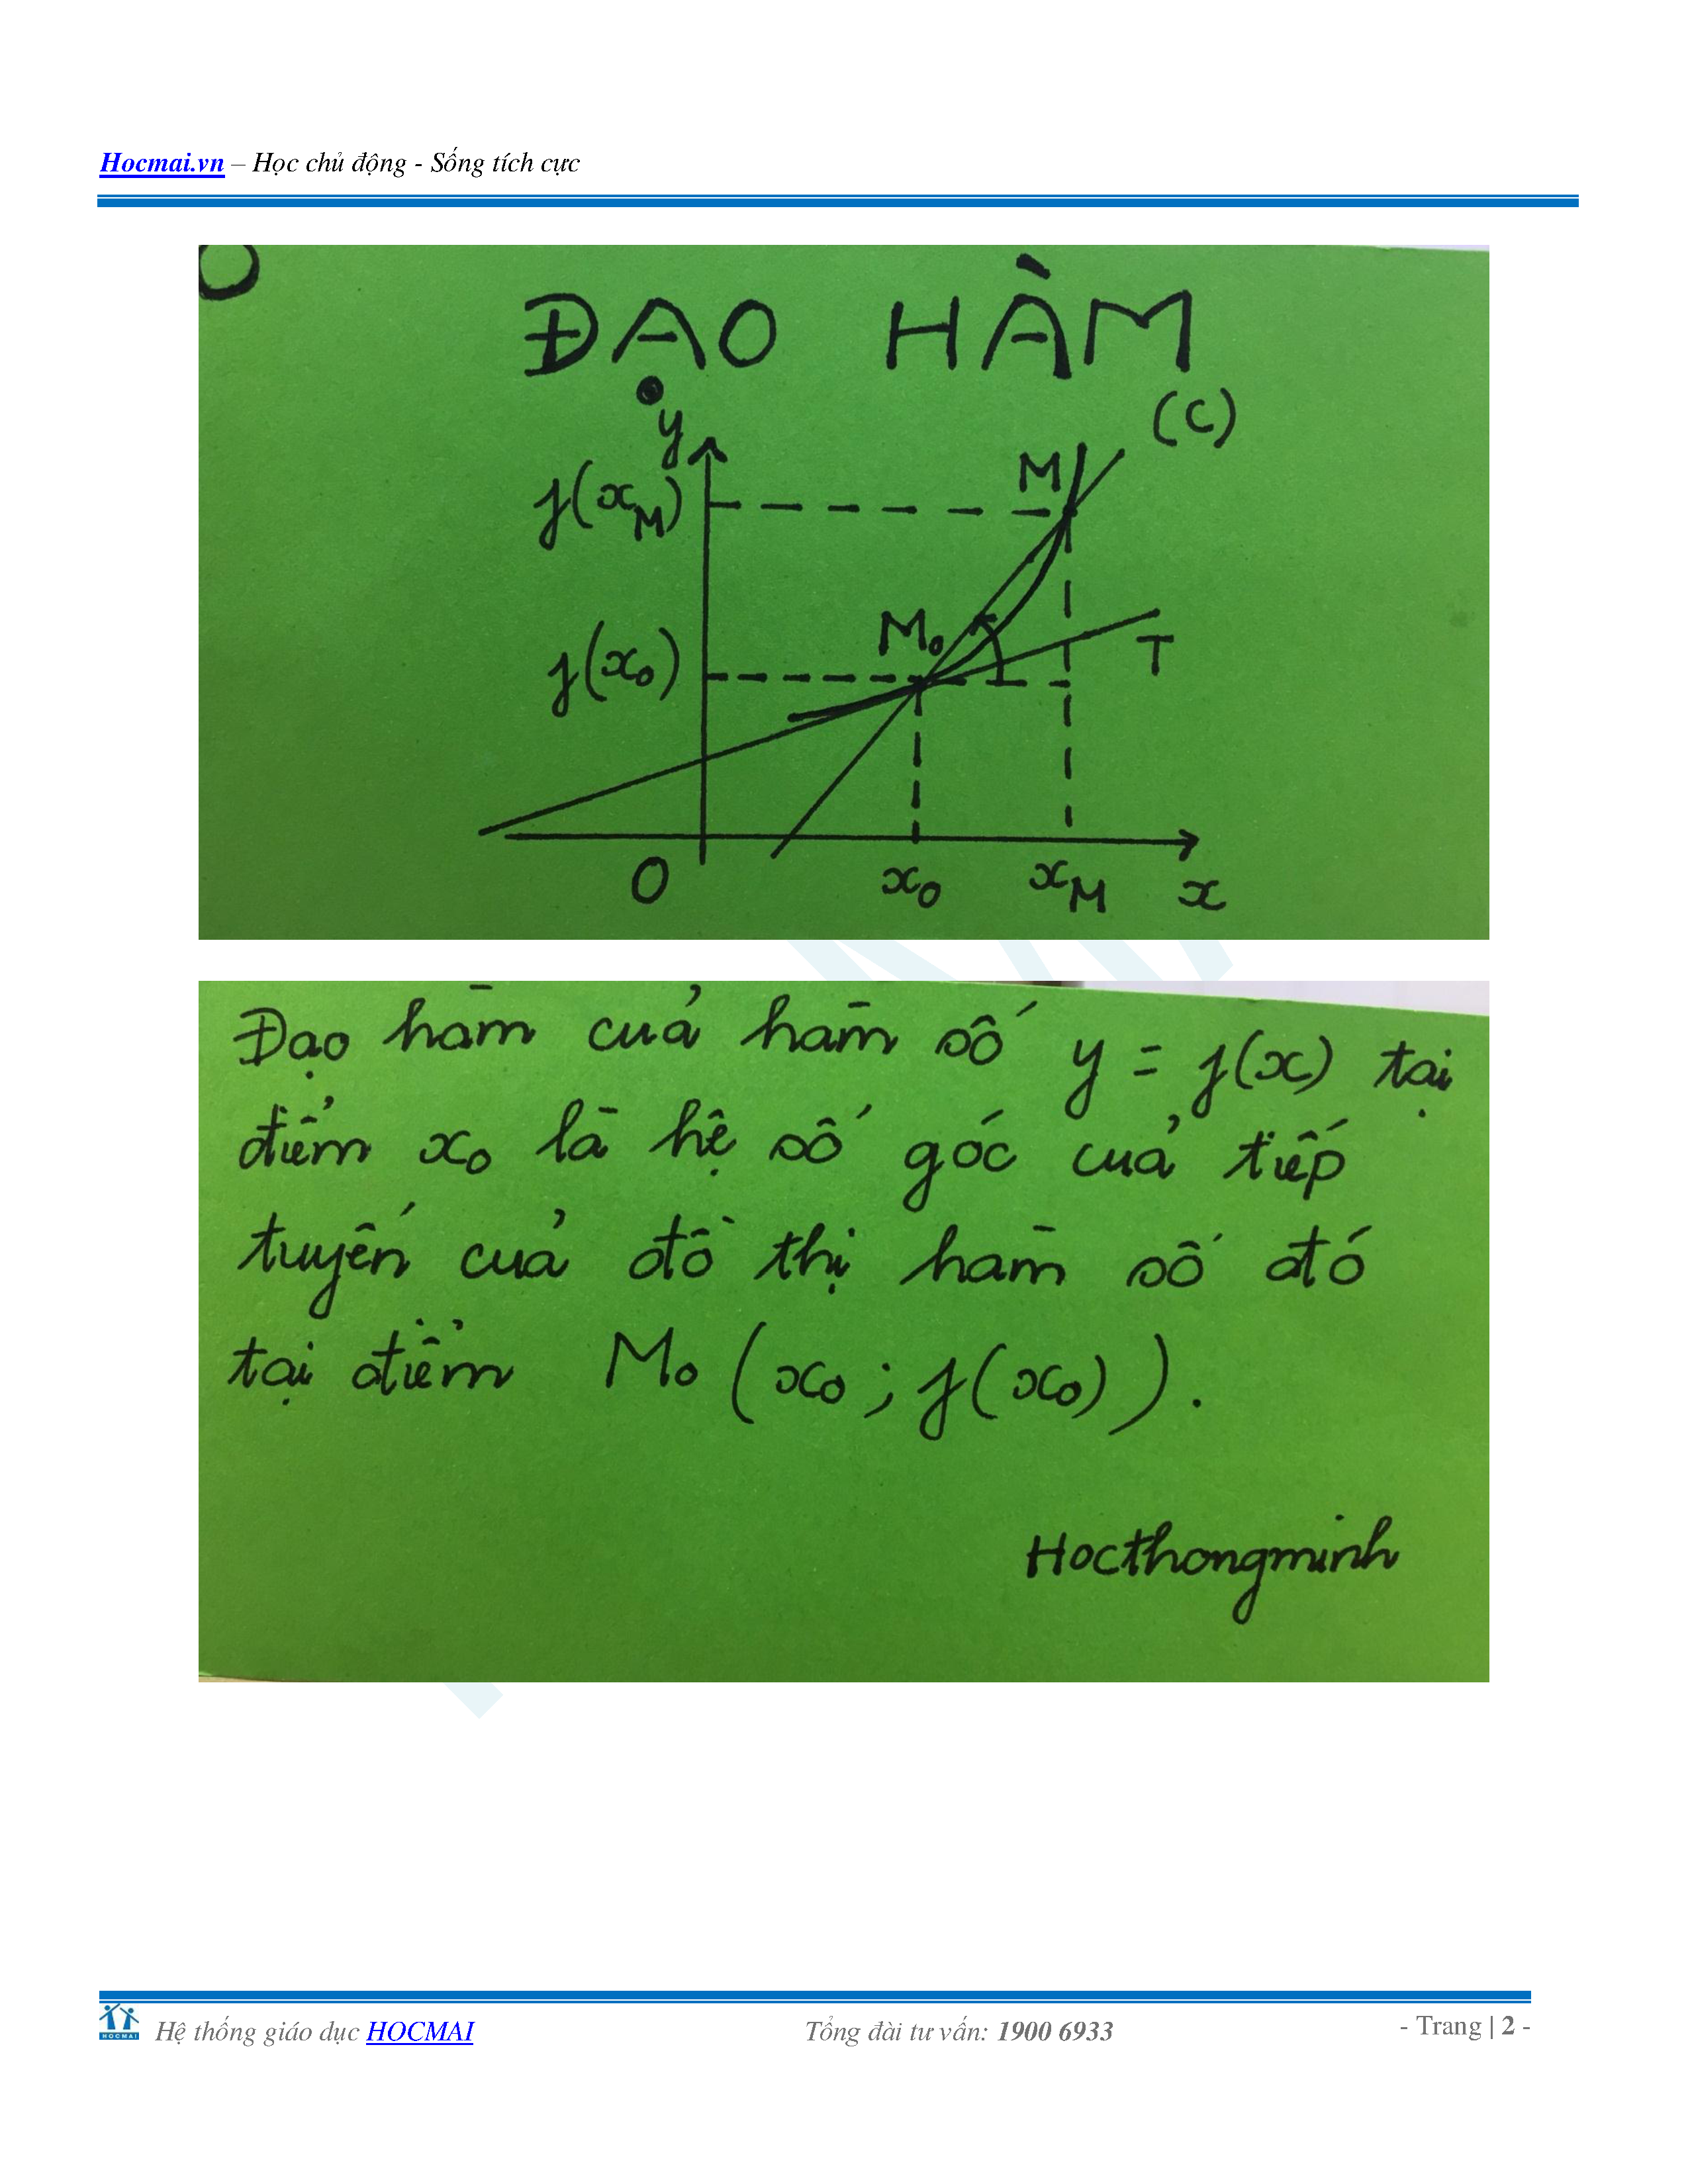 Hocmai.vn – Học chủ động - Sống tích cực
ĐẠO HÀM
(C)
y
f(x_M)
M
f(x₀)
M₀
T
O
x₀
x_M
x
Đạo hàm của hàm số y = f(x) tại
điểm x₀ là hệ số góc của tiếp
tuyến của đồ thị hàm số đó
tại điểm M₀ (x₀ ; f(x₀)).
Hocthongminh
HOCMAI
Hệ thống giáo dục HOCMAI
Tổng đài tư vấn: 1900 6933
- Trang | 2 -